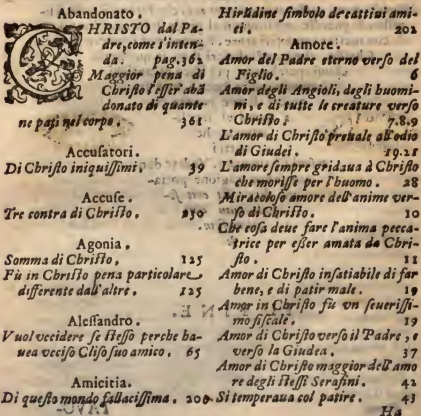 Abandonato.
CHRISTO dal Pa-
dre, come s'inten-
da. pag. 362
Maggior pena di
Christo l'esser abã
donato di quante
ne patì nel corpo. 361
Accusatori.
Di Christo iniquissimi. 39
Accuse.
Tre contra di Christo. 250
Agonia.
Somma di Christo. 125
Fù in Christo pena particolare
differente dall'altre. 125
Alessandro.
Vuol uccidere se stesso perche ha-
uea ucciso Cliso suo amico. 65
Amicitia.
Di questo mondo fallacissima. 200
Hirudine simbolo de cattiui ami-
ci. 202
Amore.
Amor del Padre eterno verso del
Figlio. 6
Amor degli Angioli, degli huomi-
ni, e di tutte le creature verso
Christo. 7.8.9
L'amor di Christo preuale all'odio
di Giudei. 19.21
L'amore sempre gridaua à Christo
che morisse per l'huomo. 28
Miracoloso amore dell'anime ver-
so di Christo. 10
Che cosa deue fare l'anima pecca-
trice per esser amata da Chri-
sto. 11
Amor di Christo insatiabile di far
bene, e di patir male. 19
Amor in Christo fù vn seuerissi-
mo fiscale. 19
Amor di Christo verso il Padre, e
verso la Giudea. 37
Amor di Christo maggior dell'amo
re degli stessi Serafini. 42
Si temperaua col patire. 43
Ha